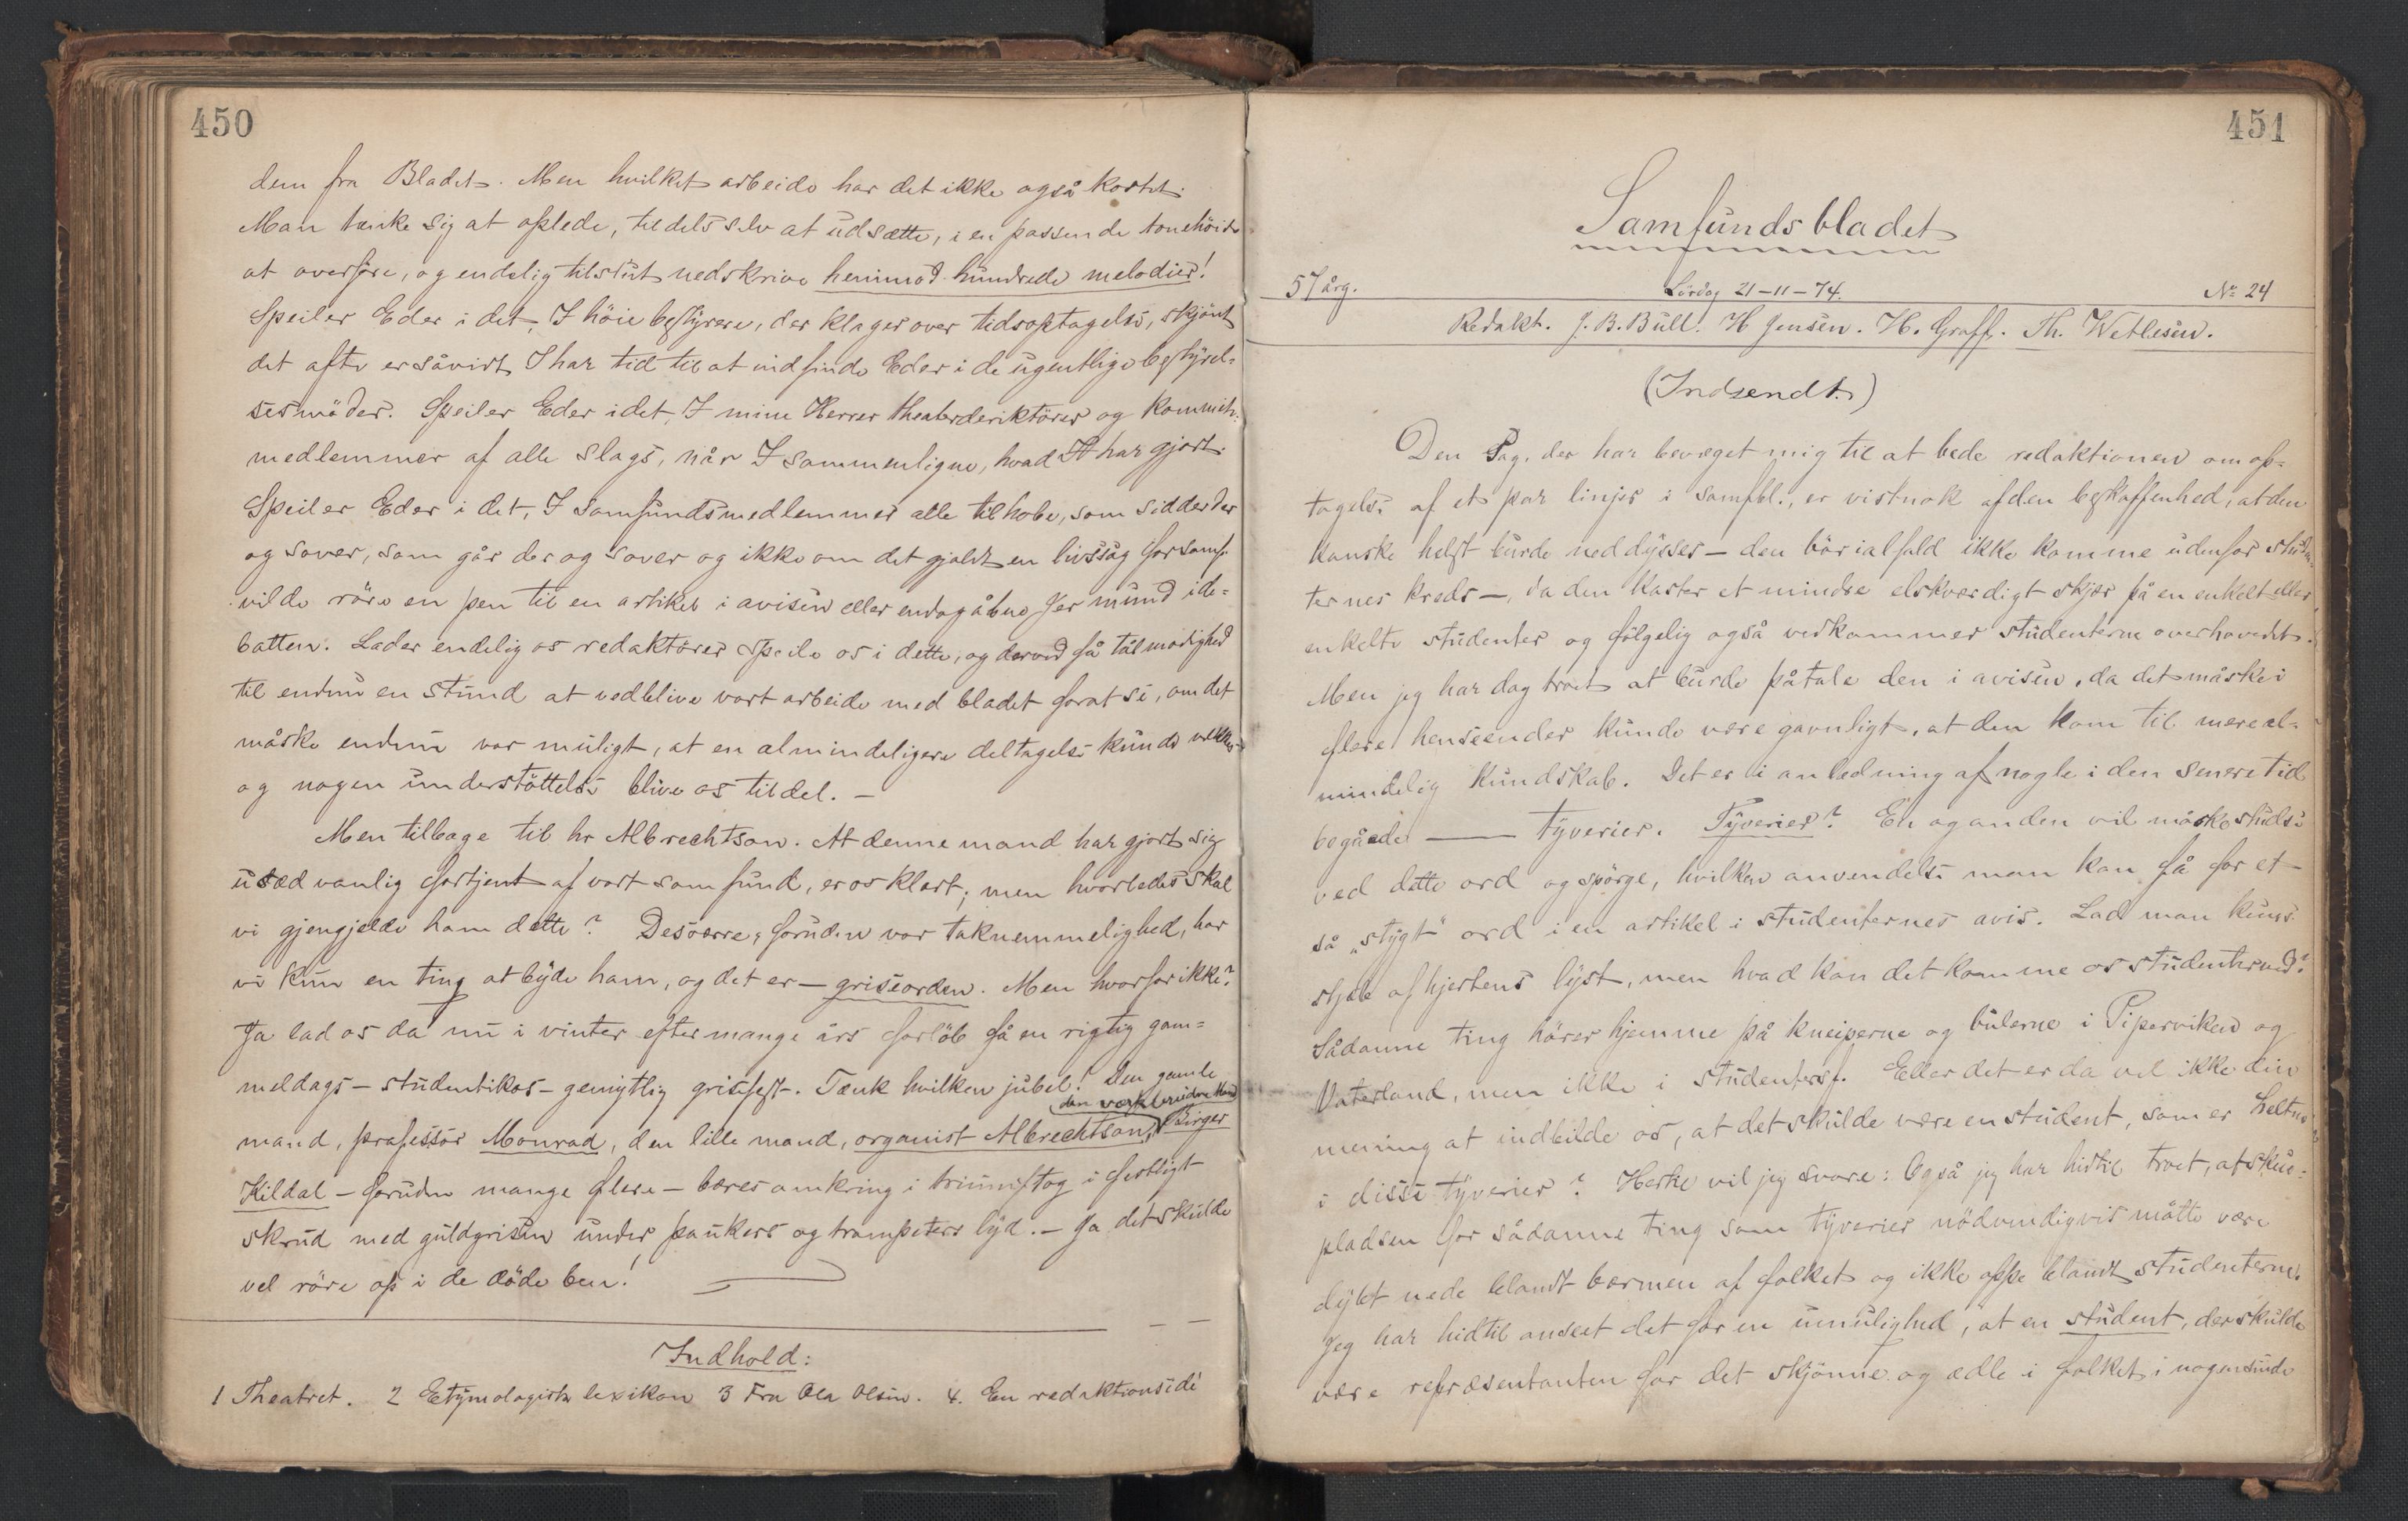 450
dem fra Bladet. Men hvilket arbeide har det ikke også kostet.
Man tænke sig at oplede, tildels selv at udsætte, i en passende tonehöide
at overføre, og endelig tilslut nedskrive henimod hundrede melodier!
Speiler Eder i det, I höie bestyrere, der klager over tidsoptagelse, skjönt
det ofte er såvidt I har tid til at indfinde Eder i de ugentlige bestyrel-
sesmöder. Speiler Eder i det, I mine Herrer theaterderiktörer og Kommite-
medlemmer af alle slags, når I sammenligne, hvad I har gjort.
Speiler Eder i det, I samfundsmedlemmer alle tilhobe, som sidder der
og sover, som går der og sover og ikke om det gjaldt en livssag for samf.
vilde röre en pen til en artikel i avisen eller endog åbne Jer mund i de-
batten. Lader endelig os redaktörer speile os i dette, og derved få tålmodighed
til endnu en stund at vedblive vort arbeide med bladet forat se, om det
måske endnu var muligt, at en almindeligere deltagelse kunde vækkes
og nogen understöttelse blive os tildel. —
Men tilbage til hr Albrechtson. At denne mand har gjort sig
usædvanlig fortjent af vort samfund, er os klart; men hvorledes skal
vi gjengjelde ham dette? Desværre, foruden vor taknemmelighed, har
vi kun en ting at byde ham, og det er — griseorden. Men hvorfor ikke?
Ja lad os da nu i vinter efter mange års forlöb få en rigtig gam-
meldags – studentikos – gemytlig grisefest. Tænk hvilken jubel! Den gamle
mand, professor Monrad, den lille mand, organist Albrechtson, Birger
Kildal – foruden mange flere – bæres omkring i triumftog i festligt
skrud med guldgrisen under paukers og trompeters lyd. – Ja det skulde
vel röre op i de döde ben!
Indhold:
1 Theatret. 2 Etymologisk lexikon 3 Fra Ola Olsen. 4. En redaktionsidé
451
Samfundsbladet
57 årg. Lördag 21–11–74. No 24
Redakt. J. B. Bull. H Jensen. H. Graff. Th. Wetlesen.
(Indsendt.)
Den Sag, der har bevæget mig til at bede redaktionen om op-
tagelse af et par linjer i samfbl., er vistnok af den beskaffenhed, at den
kanske helst burde neddysses — den bör ialfald ikke komme udenfor studen-
ternes kreds —, da den kaster et mindre elskværdigt skjær på en enkelt eller
enkelte studenter og fölgelig også vedkommer studenterne overhovedet.
Men jeg har dog troet at burde påtale den i avisen, da det måske i
flere henseender kunde være gavnligt, at den kom til mere al-
mindelig kundskab. Det er i anledning af nogle i den senere tid
begåede — tyverier. Tyverier? En og anden vil måske studse
ved dette ord og spörge, hvilken anvendelse man kan få for et
så "stygt" ord i en artikel i studenternes avis. Lad man kuns
stjæle af hjertens lyst, men hvad kan det komme os studenter ved?
Sådanne ting hører hjemme på kneiperne og bulerne i Piperviken og
Vaterland, men ikke i studentersf. Eller det er da vel ikke din
mening at indbilde os, at det skulde være en student, som er helten
i disse tyverier? Hertil vil jeg svare: Også jeg har hidtil troet, at skue-
pladsen for sådanne ting som tyverier nödvendigvis måtte være
dybt nede blandt bærmen af folket og ikke oppe blandt studenterne.
Jeg har hidtil anseet det for en umulighed, at en student, der skulde
være repræsentanten for det skjönne og ædle i folket, i nogensinde